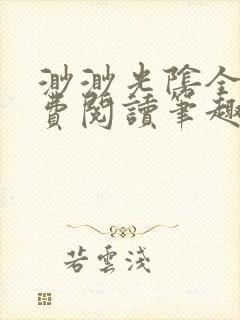 渺渺光陰全
費閱讀筆趣
若雲淺